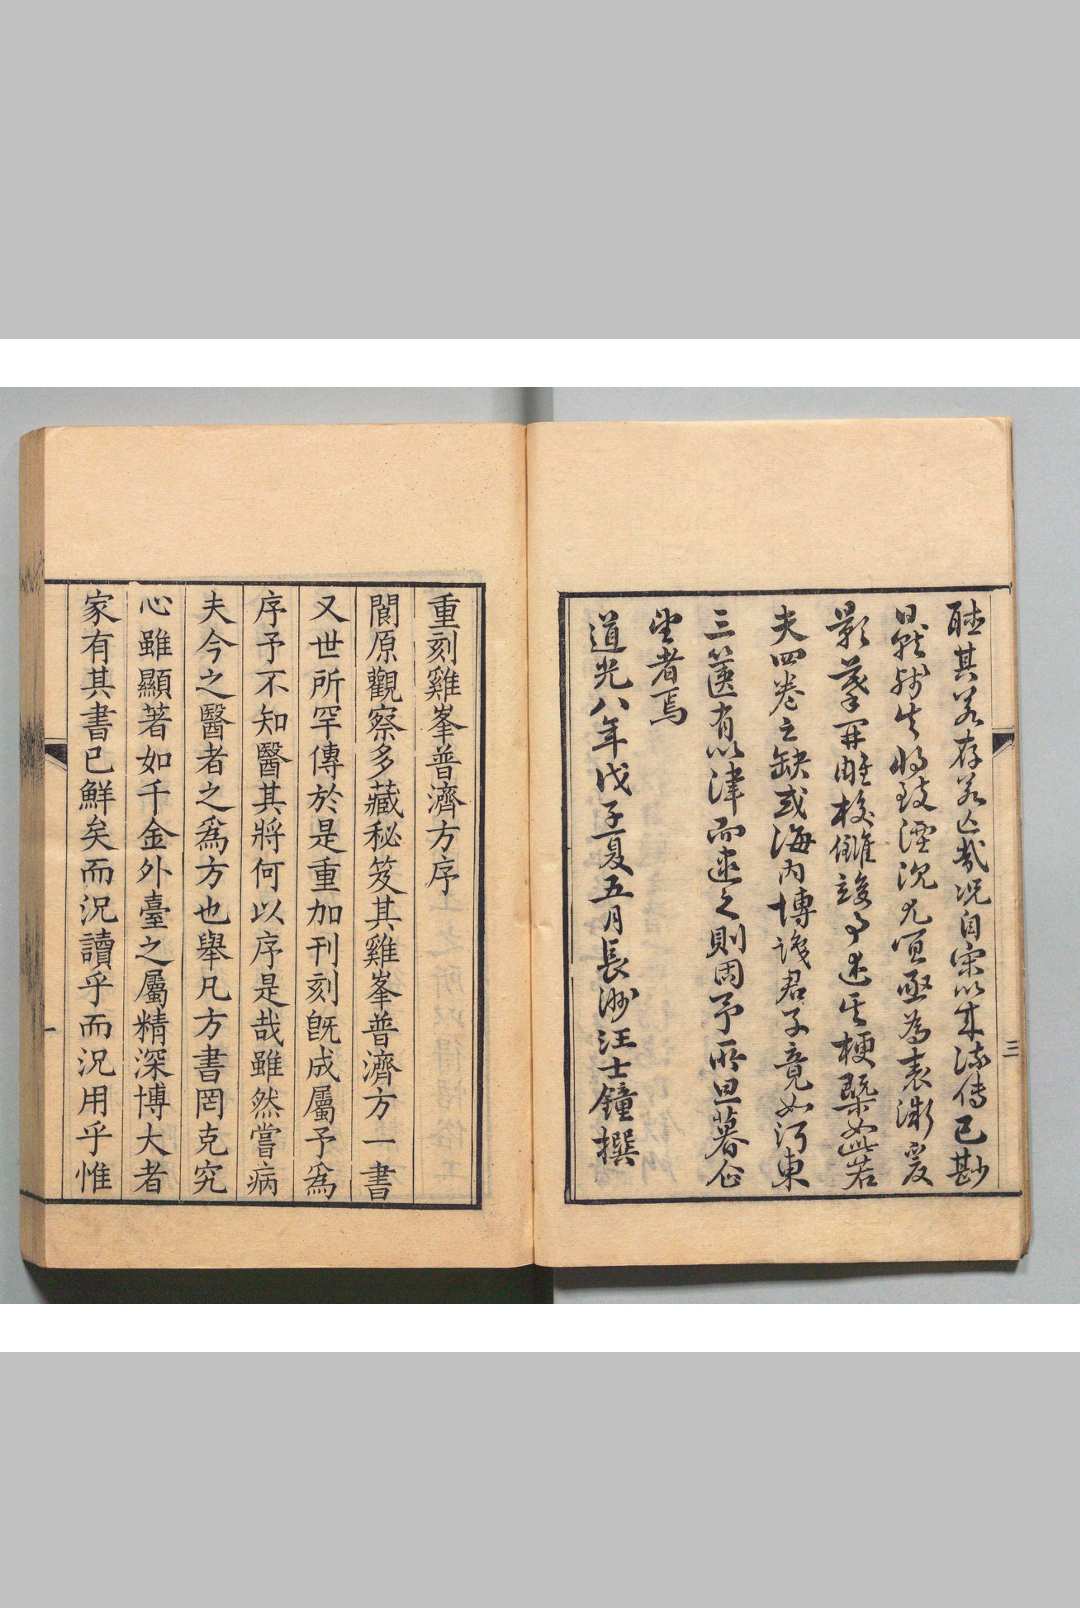 聽其若存若亡哉況自宋以來流傳已尠
日就殘失將致湮沉尤宜亟為表微爰
影摹開雕校讎竣事述其梗槩如此若
夫四卷之缺或海內博識君子竟如河東
三篋有以津而逮之則固予所旦暮企
望者焉
道光八年戊子夏五月長洲汪士鐘撰
三
重刻雞峯普濟方序
閬原觀察多藏秘笈其雞峯普濟方一書
又世所罕傳於是重加刊刻旣成屬予爲
序予不知醫其將何以序是哉雖然嘗病
夫今之醫者之爲方也舉凡方書罔克究
心雖顯著如千金外臺之屬精深博大者
家有其書已鮮矣而況讀乎而況用乎惟